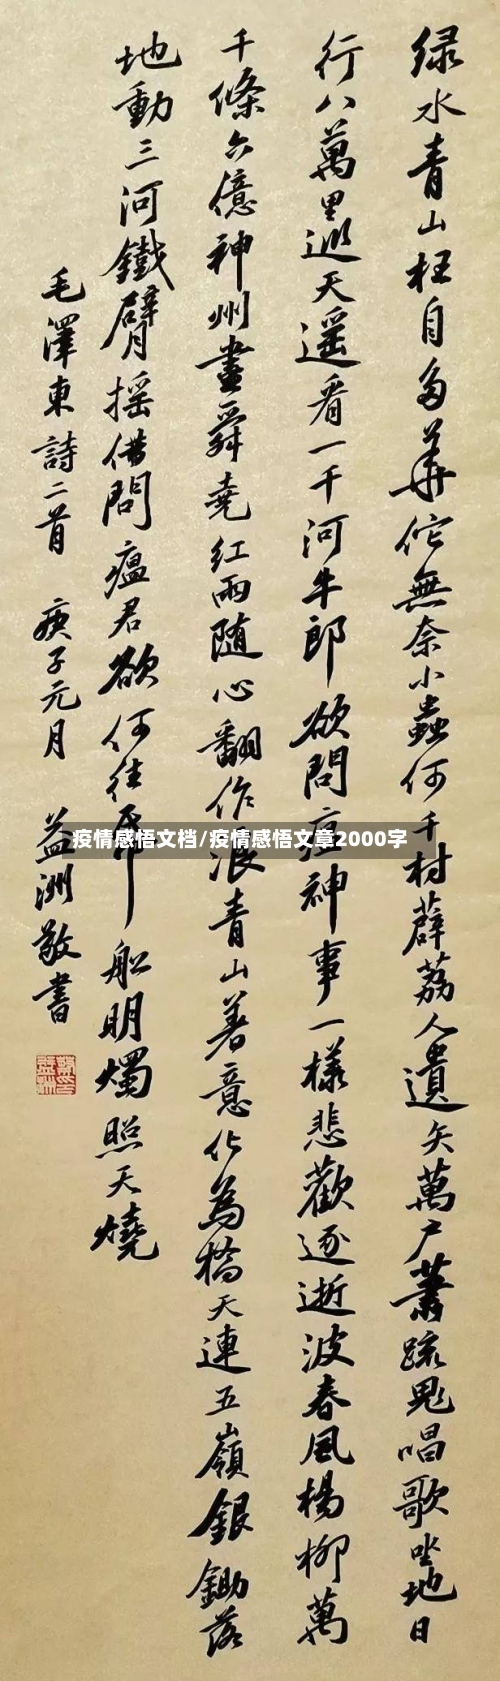 绿水青山枉自多華佗無奈小蟲何千村薜荔人遺矢萬户蕭疏鬼唱歌坐地日
行八萬里巡天遥看一千河牛郎欲問瘟神事一樣悲歡逐逝波春風楊柳萬
千條六億神州盡舜尭红雨随心翻作浪青山著意化為橋天連五嶺銀鋤落
地動三河鐵臂摇借問瘟君欲何往帋船明燭照天燒
毛澤東詩二首 庚子元月 益洲敬書
疫情感悟文档/疫情感悟文章2000字